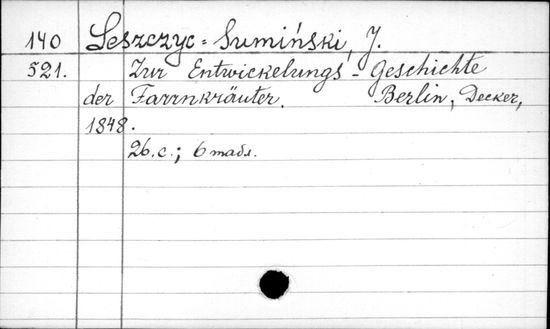 140 Leszczyc-Sumiński, J.
521. Zur Entwickelungs-Geschichte
der Farrnkräuter. Berlin, Decker,
1848.
26.c.; 6 табл.